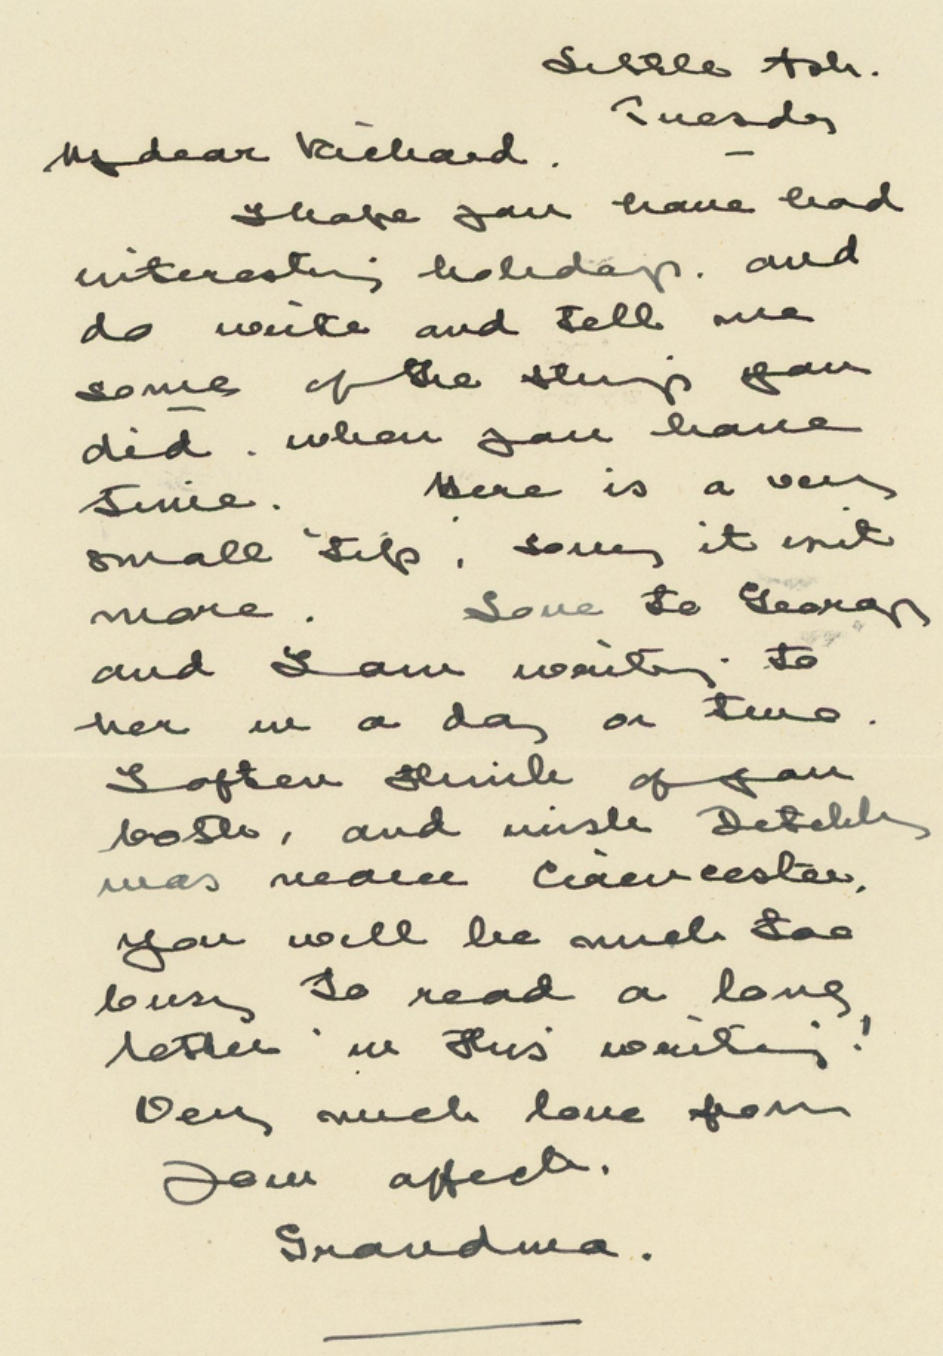 Little Ash.
Tuesday
My dear Richard.
I hope you have had
interesting holidays. and
do write and tell me
some of the things you
did. when you have
time. Here is a very
small 'tip', sorry it isn't
more. Love to Georgy
and I am writing to
her in a day or two.
I often think of you
both, and wish Detchly
was nearer Cirencester.
you will be much too
busy to read a long
letter in this writing!
Very much love from
your affect.
Grandma.